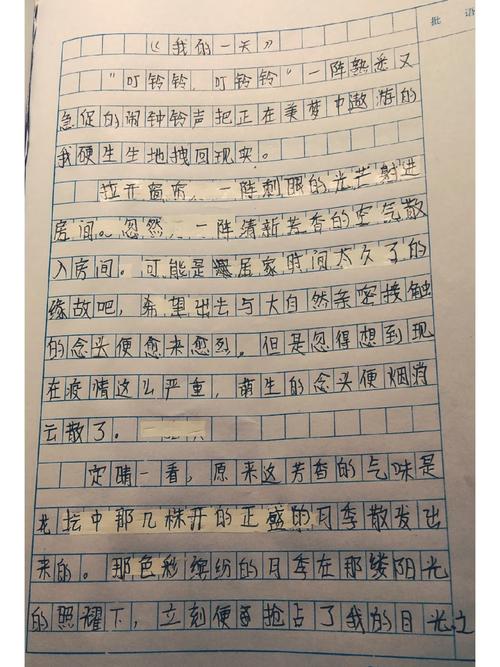 批语
《我的一天》
“叮铃铃，叮铃铃”一阵熟悉又
急促的闹钟铃声把正在美梦中遨游的
我硬生生地拽回现实。
拉开窗帘，一阵刺眼的光芒射进
房间。忽然，一阵清新芳香的空气散
入房间。可能是居家时间太久了的
缘故吧，希望出去与大自然亲密接触
的念头便愈来愈烈。但是忽得想到现
在疫情这么严重，萌生的念头便烟消
云散了。
定睛一看，原来这芳香的气味是
花坛中那几株开的正盛的月季散发出
来的。那色彩缤纷的月季在那缕阳光
的照耀下，立刻便抢占了我的目光。